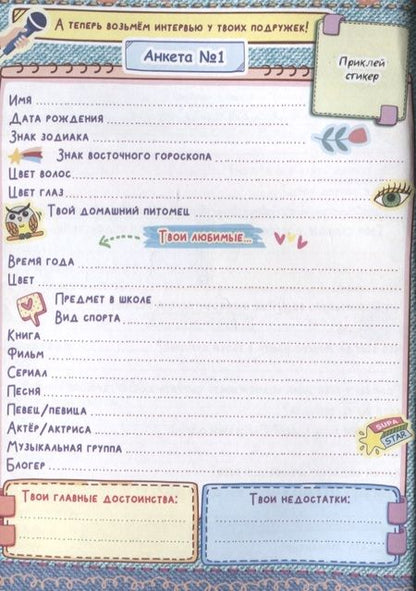 А теперь возьмём интервью у твоих подружек!
Анкета №1
Приклей
стикер
Имя
Дата рождения
Знак зодиака
Знак восточного гороскопа
Цвет волос
Цвет глаз
Твой домашний питомец
Твои любимые...
Время года
Цвет
Предмет в школе
Вид спорта
Книга
Фильм
Сериал
Песня
Певец/певица
Актёр/актриса
SUPA
STAR
Музыкальная группа
Блогер
Твои главные достоинства:
Твои недостатки: